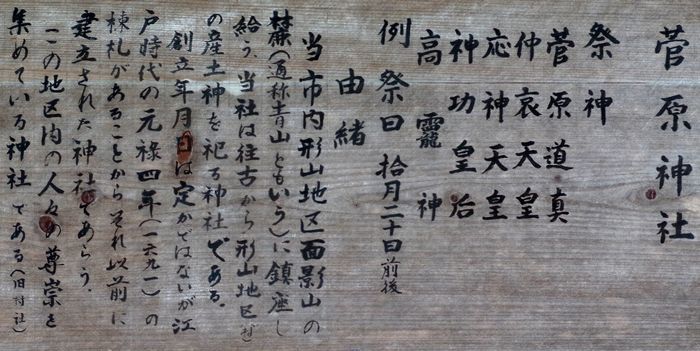 菅原神社
祭神
菅原道真
仲哀天皇
応神天皇
神功皇后
高龗神
例祭日 拾月二十日前後
由緒
当市内形山地区面影山の
麓(通称青山ともいう)に鎮座し
給う。当社は往古から形山地区(村)
の産土神を祀る神社である。
創立年月日は定かではないが江
戸時代の元祿四年(一六九一)の
棟札があることからそれ以前に
建立された神社であろう。
この地区内の人々の尊崇を
集めている神社である(旧村社)